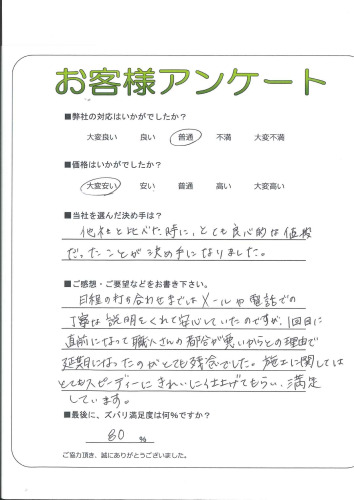 お客様アンケート
■弊社の対応はいかがでしたか?
大変良い 良い 普通 不満 大変不満
■価格はいかがでしたか?
大変安い 安い 普通 高い 大変高い
■当社を選んだ決め手は?
他社と比べた時に、とても良心的な価段
だったことが決め手になりました。
■ご感想・ご要望などをお書き下さい。
日程の打ち合わせまではメールや電話での
丁寧な説明をくれて安心していたのですが、1回目に
直前になって職人さんの都合が悪いからとの理由で
延期になったのがとても残念でした。施工に関しては
とてもスピーディーにきれいに仕上げてもらい、満足
しています。
■最後に、ズバリ満足度は何%ですか?
80 %
ご協力頂き、誠にありがとうございました。